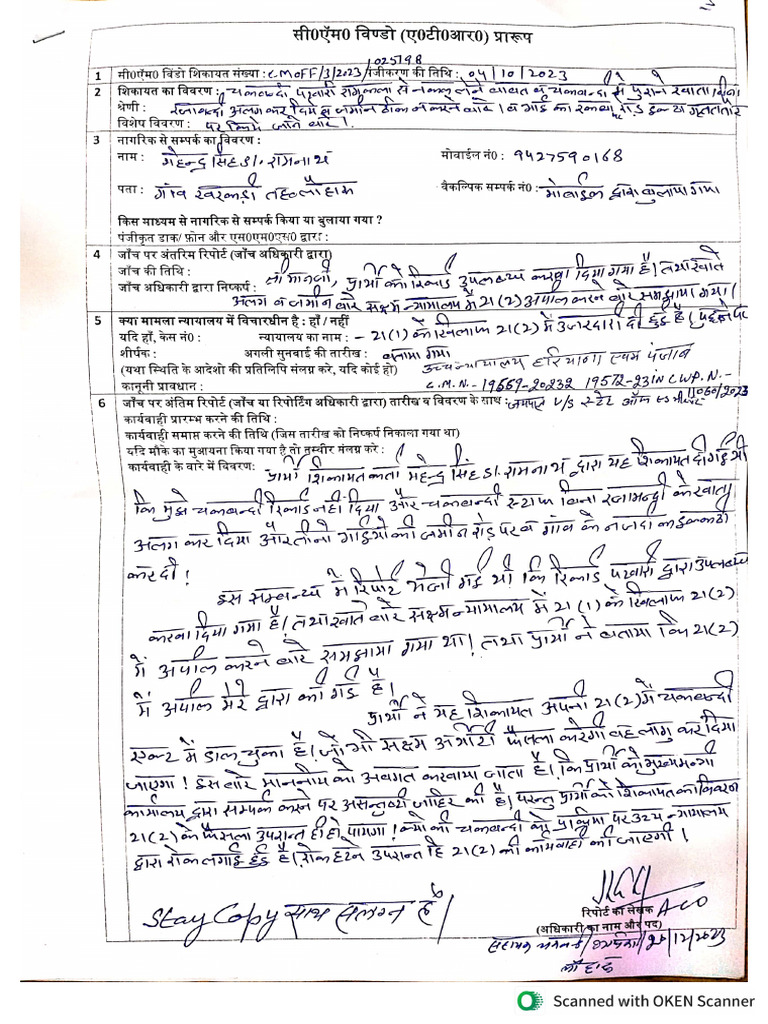 सी०ऍम० विण्डो (ए०टी०आर०) प्रारूप
1 सी०ऍम० विंडो शिकायत संख्या : CMOFF/3/2023/025198 पंजीकरण की तिथि : 04/10/2023
2 शिकायत का विवरण : चकबन्दी पटवारी से नकल लेने बाबत व चकबन्दी में पुराने खाता बिना
श्रेणी : रजाबन्दी अलग कर दिये व जमीन ठीक न करने बारे। व गाड का रकबा रोड
विशेष विवरण : पर किये जाने बारे।
3 नागरिक से सम्पर्क का विवरण :
नाम : महेन्द्र सिंह S/. रामनाथ मोबाईल नं० : 9427590168
पता : गांव खरकड़ी तह० लोहारू वैकल्पिक सम्पर्क नं० : मोबाईल द्वारा बुलाया गया
किस माध्यम से नागरिक से सम्पर्क किया या बुलाया गया ?
पंजीकृत डाक/ फ़ोन और एस०एम०एस० द्वारा :
4 जाँच पर अंतरिम रिपोर्ट (जाँच अधिकारी द्वारा)
जाँच की तिथि : श्रीमानजी, प्रार्थी को रिकार्ड उपलब्ध करवा दिया गया है। तथा खाते
जाँच अधिकारी द्वारा निष्कर्ष : अलग व जमीन बारे सक्षम न्यायालय में 21(2) अपील करने बारे समझाया गया।
5 क्या मामला न्यायालय में विचारधीन है : हाँ / नहीं
यदि हाँ, केस नं० : न्यायालय का नाम : - 21(1) के खिलाफ 21(2) में उजरदारी दी हुई है।
शीर्षक : अगली सुनवाई की तारीख : बताया गया
(यथा स्थिति के आदेशो की प्रतिलिपि संलग्न करे, यदि कोई हो) उच्च न्यायालय हरियाणा एवम पंजाब
कानूनी प्रावधान : C.M.N.-19669-20232 19572-23 IN CWP.N.- 11060/2023
6 जाँच पर अंतिम रिपोर्ट (जाँच या रिपोर्टिंग अधिकारी द्वारा) तारीख व विवरण के साथ : V/S स्टेट ऑफ
कार्यवाही प्रारम्भ करने की तिथि :
कार्यवाही समाप्त करने की तिथि (जिस तारीख को निष्कर्ष निकाला गया था)
यदि मौके का मुआयना किया गया है तो तस्वीर संलग्न करे :
कार्यवाही के बारे में विवरण: प्रार्थी शिकायतकर्ता महेन्द्र सिंह S/. रामनाथ द्वारा यह शिकायत दी गई थी
कि मुझे चकबन्दी रिकार्ड नही दिया और चकबन्दी स्टाफ बिना रजामन्दी के खाते
अलग कर दिया है और तीनो की जमीन रोड पर व गांव के नजदीक इकट्ठी
कर दी।
इस सम्बन्ध में रिपोर्ट भेजी गई थी कि रिकार्ड पटवारी द्वारा उपलब्ध
करवा दिया गया है। तथा खाते बारे सक्षम न्यायालय में 21(1) के खिलाफ 21(2)
में अपील करने बारे समझाया गया था। तथा प्रार्थी ने बताया कि 21(2)
में अपील मेरे द्वारा की गई है।
प्रार्थी ने यह शिकायत अपनी 21(2) में चकबन्दी
एक्ट में डाल चुका है। जो भी सक्षम फैसला करेगी वह लागु कर दिया
जाएगा। इस बारे माननीय को अवगत करवाया जाता है। कि प्रार्थी को मुख्यमन्त्री
कार्यालय द्वारा सम्पर्क करने पर असन्तुष्टी जाहिर की है। परन्तु प्रार्थी की शिकायत का निवारण
21(2) के फैसला उपरान्त ही हो पायेगा। क्यो की चकबन्दी की प्रक्रिया पर उच्च न्यायालय
द्वारा रोक लगाई हुई है। रोक हटने उपरान्त हि 21(2) की कार्यवाही की जाएगी।
Stay Copy साथ संलग्न है।
ACO
रिपोर्ट का लेखक
(अधिकारी का नाम और पद)
26/12/2023
लोहारू
Scanned with OKEN Scanner